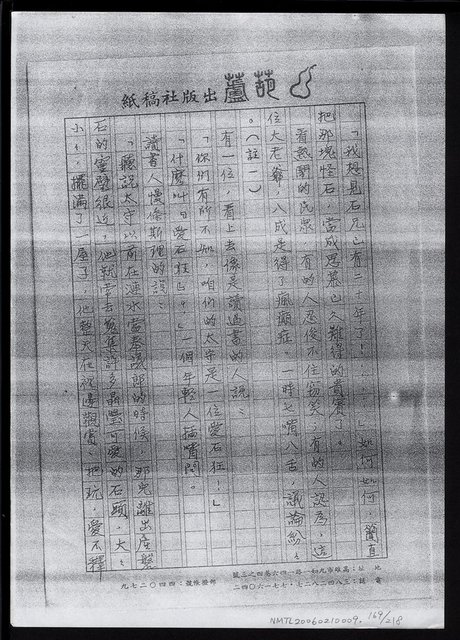 葫蘆出版社稿紙
「我想見石兄已有二十年了！……」如何如何，簡直
把那塊怪石，當成思慕已久難得的貴賓了。
看熱鬧的民眾，有的人忍俊不住竊笑；有的人認為，這
位大老爺，八成是得了瘋癲症。一時七嘴八舌，議論紛紛
。（註一）
有一位，看上去像是讀過書的人說：
「你們有所不知，咱們的太守是一位愛石狂！」
「什麼叫『愛石狂』？」一個年輕人插嘴問。
讀書人慢條斯理的說：
「聽說太守以前在漣水當參議郎的時候，那兒離出產磐
石的靈壁很近，他就常去蒐集許多晶瑩可愛的石頭，大大
小小，擺滿了一屋子，他整天在視邊觀賞、把玩，愛不釋
地址：高雄市九如一路一四六巷四之三號
電話：三八四二八二七·七七一六〇四二
郵撥帳號：四四〇二七九
NMTL20060210009. 169/218